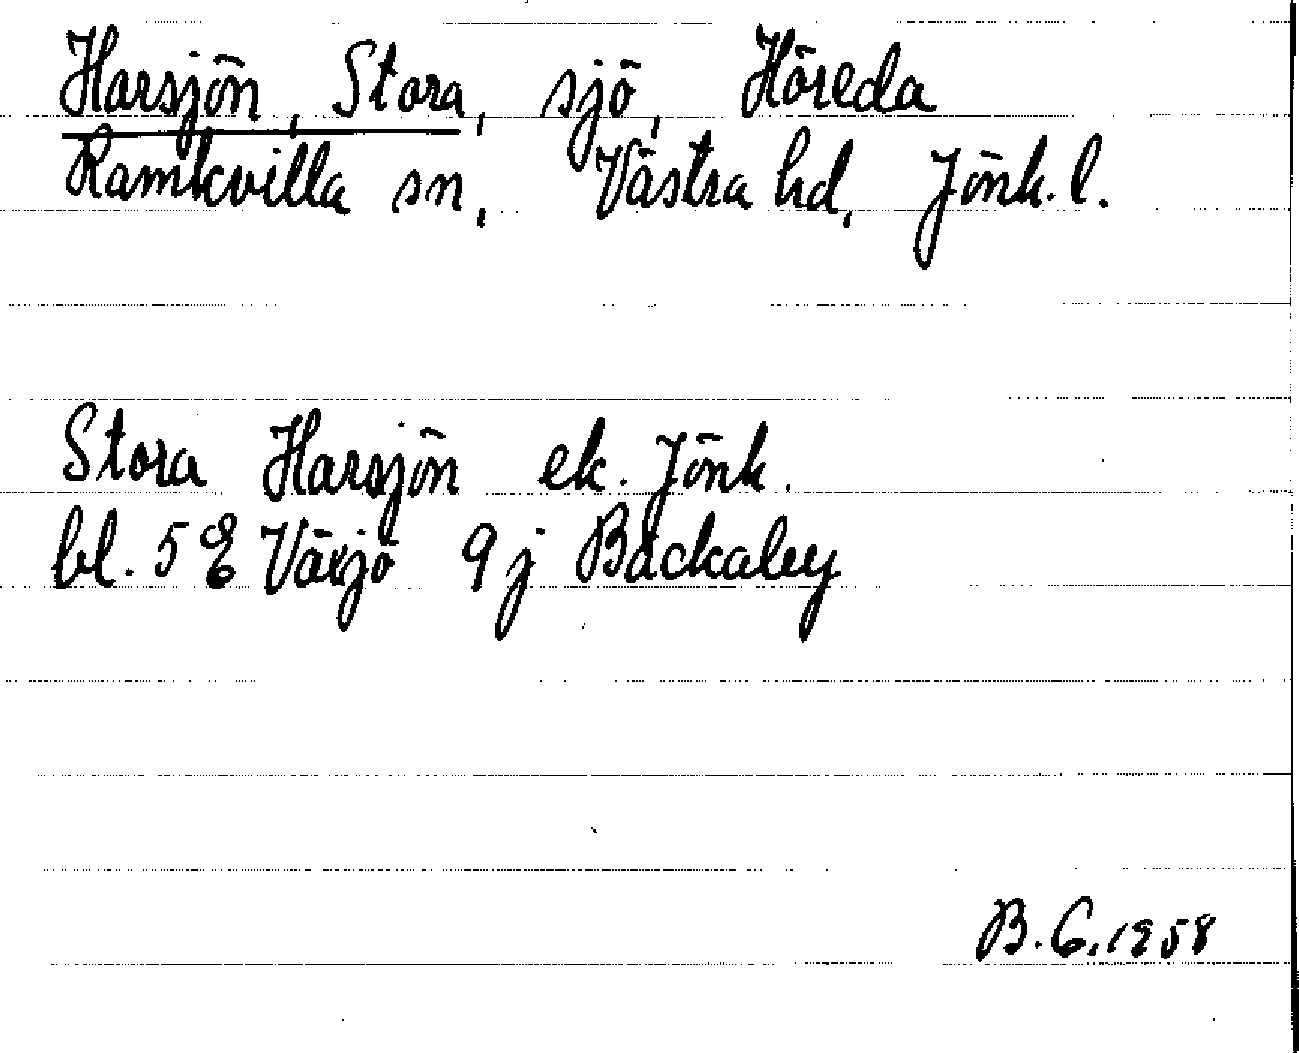 Harsjön, Stora, sjö, Höreda
Ramkvilla sn, Västra hd, Jönk. l.
Stora Harsjön ek. Jönk.
bl. 5 E Växjö 9 j Bäckaby
B. G. 1958